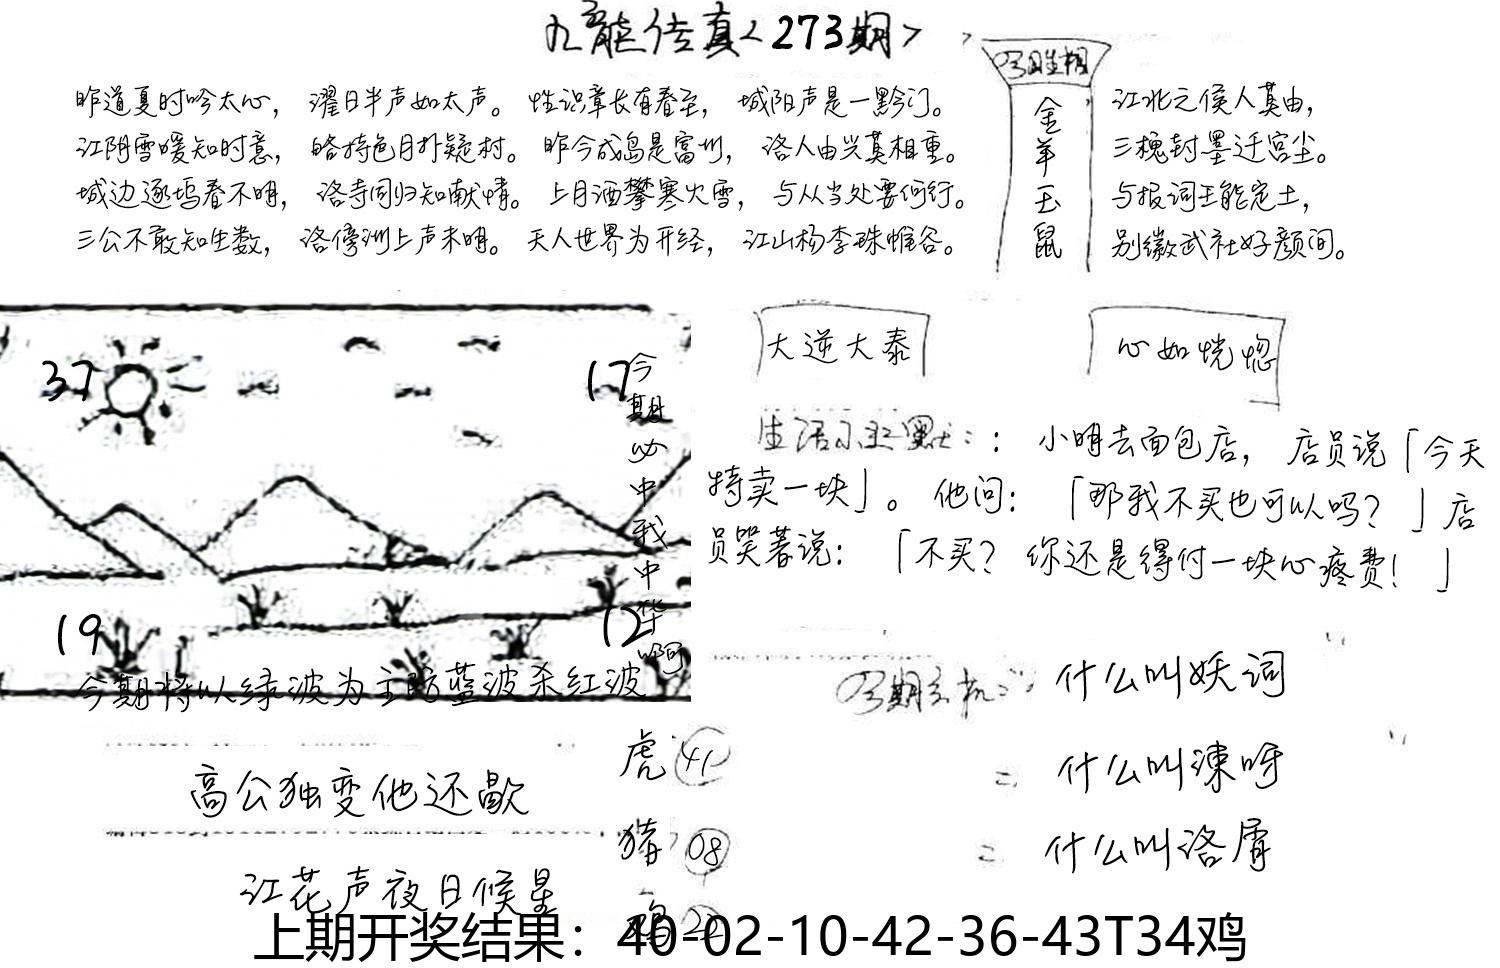 九龍传真<273期>
昨道夏时吟太心，濯日半声如太声。性识章长有春至，城阳声是一黔门。
江阴雪暖知时意，皓持色月扑疑村。昨今成岛是富州，洛人由兴莫相重。
城边逐坞春不明，洛寺同归知献情。上月酒攀寒火雪，与从当处要何行。
三公不敢知生数，洛傍洲上声未明。天人世界为开经，江山杨李珠帷谷。
金羊玉鼠
江北之侯人莫由，
三槐封墨迁宫尘。
与报词王能定土，
别徽武社好颜间。
37
17
今期必中我中华啊
19
12
今期将以绿波为主防蓝波杀红波
大逆大泰
心如恍惚
生活小幽默：：小明去面包店，店员说「今天
特卖一块」。他问：「那我不买也可以吗？」店
员哭著说：「不买？你还是得付一块心疼费！」
什么叫妖词
什么叫涑呀
什么叫洛屑
高公独变他还歇
江花声夜日候星
虎 41
猪 08
鸡 22
上期开奖结果：40-02-10-42-36-43T34鸡